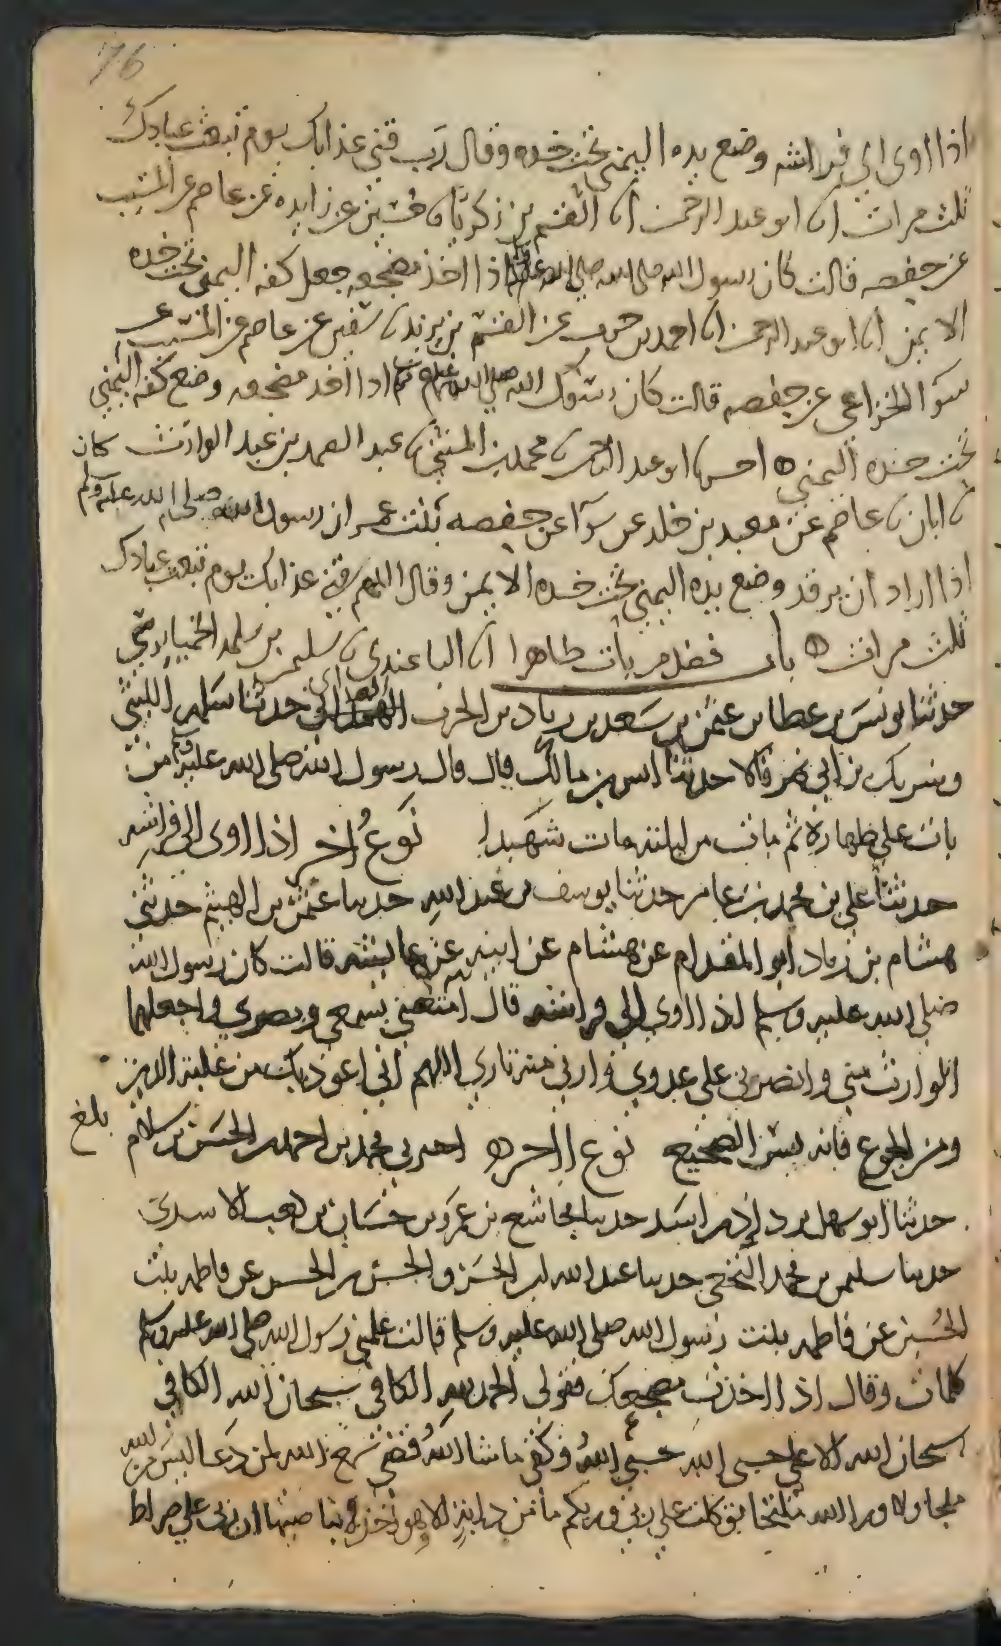 76
اذا اوى الى فراشه وضع يده اليمنى تحت خده وقال رب قني عذابك يوم تبعث عبادك
ثلث مرات انا ابو عبد الرحمن انا القسم بن زكريا حسين عن زايدة عن عاصم عن المسيب
عن حفصه قالت كان رسول الله صلى الله عليه اذا اخذ مضجعه جعل كفه اليمنى تحت خده
الايمن انا ابو عبد الرحمن انا احمد بن حرب عن القسم بن يزيد سفين عن عاصم عن المسيب عن
سوا الخزاعي عن حفصه قالت كان رسول الله صلى الله عليه وسلم اذا اخذ مضجعه وضع كفه اليمنى
تحت خده اليمنى ابو عبد الرحمن محمد بن المثنى عبد الصمد بن عبد الوارث كان
ابان عاصم عن معبد بن خلد عن سوا عن حفصه بنت عمر ان رسول الله صلى الله عليه وسلم
اذا اراد ان يرقد وضع يده اليمنى تحت خده الايمن وقال اللهم قني عذابك يوم تبعث عبادك
ثلث مرات باب فضل من بات طاهرا انا الباغندي سليمن بن سلمه الخبايري
حدثنا يونس بن عطا بن عثمن بن سعد بن زياد بن الحرث الصداي حدثنا سلمه الليثي
وشريك بن ابي نمر قالا حدثنا انس بن مالك قال قال رسول الله صلى الله عليه وسلم من
بات على طهارة ثم مات من ليلته مات شهيدا نوع اخر اذا اوى الى فراشه
حدثنا علي بن محمد بن عامر حدثنا يوسف بن عبد الله حدثنا عثمن بن الهيثم حدثني
هشام بن زياد ابو المقدام عن هشام عن ابيه عن عايشه قالت كان رسول الله
صلى الله عليه وسلم اذا اوى الى فراشه قال امتعني بسمعي وبصري واجعلهما
الوارث مني وانصرني على عدوي وارني منه ثاري اللهم اني اعوذ بك من غلبة الدين
ومن الجوع فانه بئس الضجيع نوع اخر اخبرني محمد بن احمد بن الحسن بن سلام بلغ
حدثنا ابو سهل بن اسد حدثنا مجاشع بن عمرو بن حسان بن كعب الاسدي
حدثنا سليمن بن محمد النخعي حدثنا عبد الله بن الحسن والحسن بن الحسن عن فاطمه بنت
الحسين عن فاطمه بنت رسول الله صلى الله عليه وسلم قالت علمني رسول الله صلى الله عليه وسلم
كلمات وقال اذا اخذت مضجعك فقولي الحمد لله الكافي سبحان الله الكافي
سبحان الله الاعلى حسبي الله وكفى ما شا الله قضى سمع الله لمن دعا ليس من الله
ملجا ولا ورا الله ملتجا توكلت على ربي وربكم ما من دابة الا هو اخذ بناصيتها ان ربي على صراط